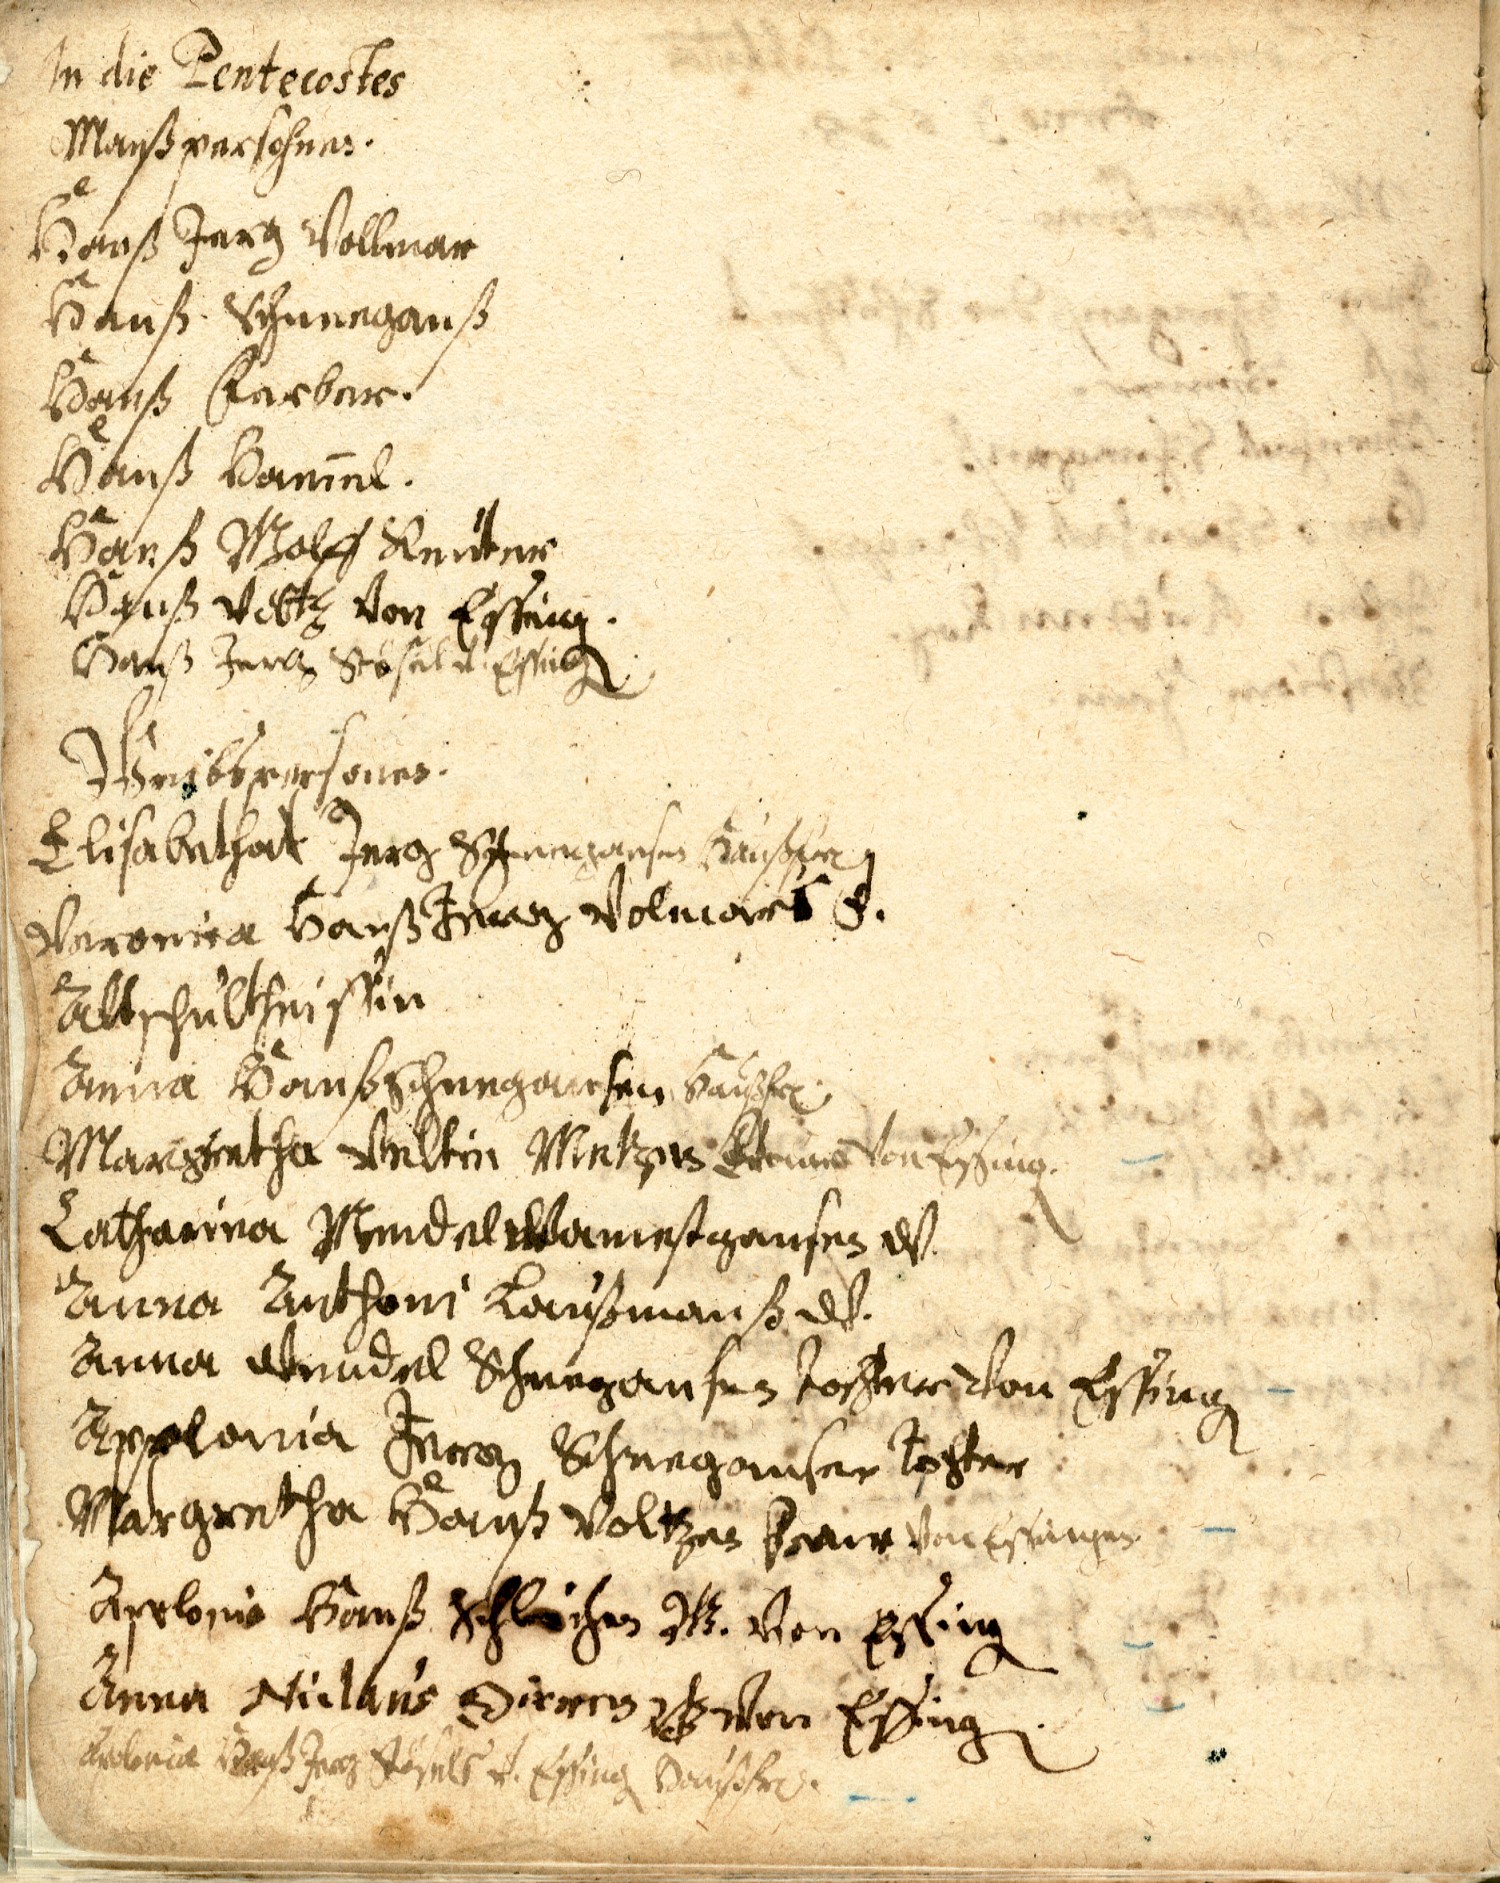 In die Pentecostes
Manßpersohnen.
Hanß Jerg Vollmar
Hanß Schneeganß
Hanß Ferber.
Hanß Ham̄el.
Hanß Wolff Reüter
Hanß Veltz von Essing.
Hanß Jerg Stösel v. Essing
Weibspersonen.
Elisabetha Jerg Schneegansen Haußfr.
Veronica Hanß Jerg Volmars
Altschultheissin
Anna Hanß Schnegansen Haußfr.
Margretha Veltin Metzen von Essing.
Catharina Wendel
Anna Anthoni Laußmanß W.
Anna Wendel Schnegansen tochter von Essing
Appolonia Jerg Schneganser tochter
Margretha Hanß Voltzen fraw von Essingen
Apolonia Hanß Schleichen W. von Essing
Anna Niclaus Dirren W von Essing
Apolonia Hanß Jerg Stösels v. Essing Haußfr.